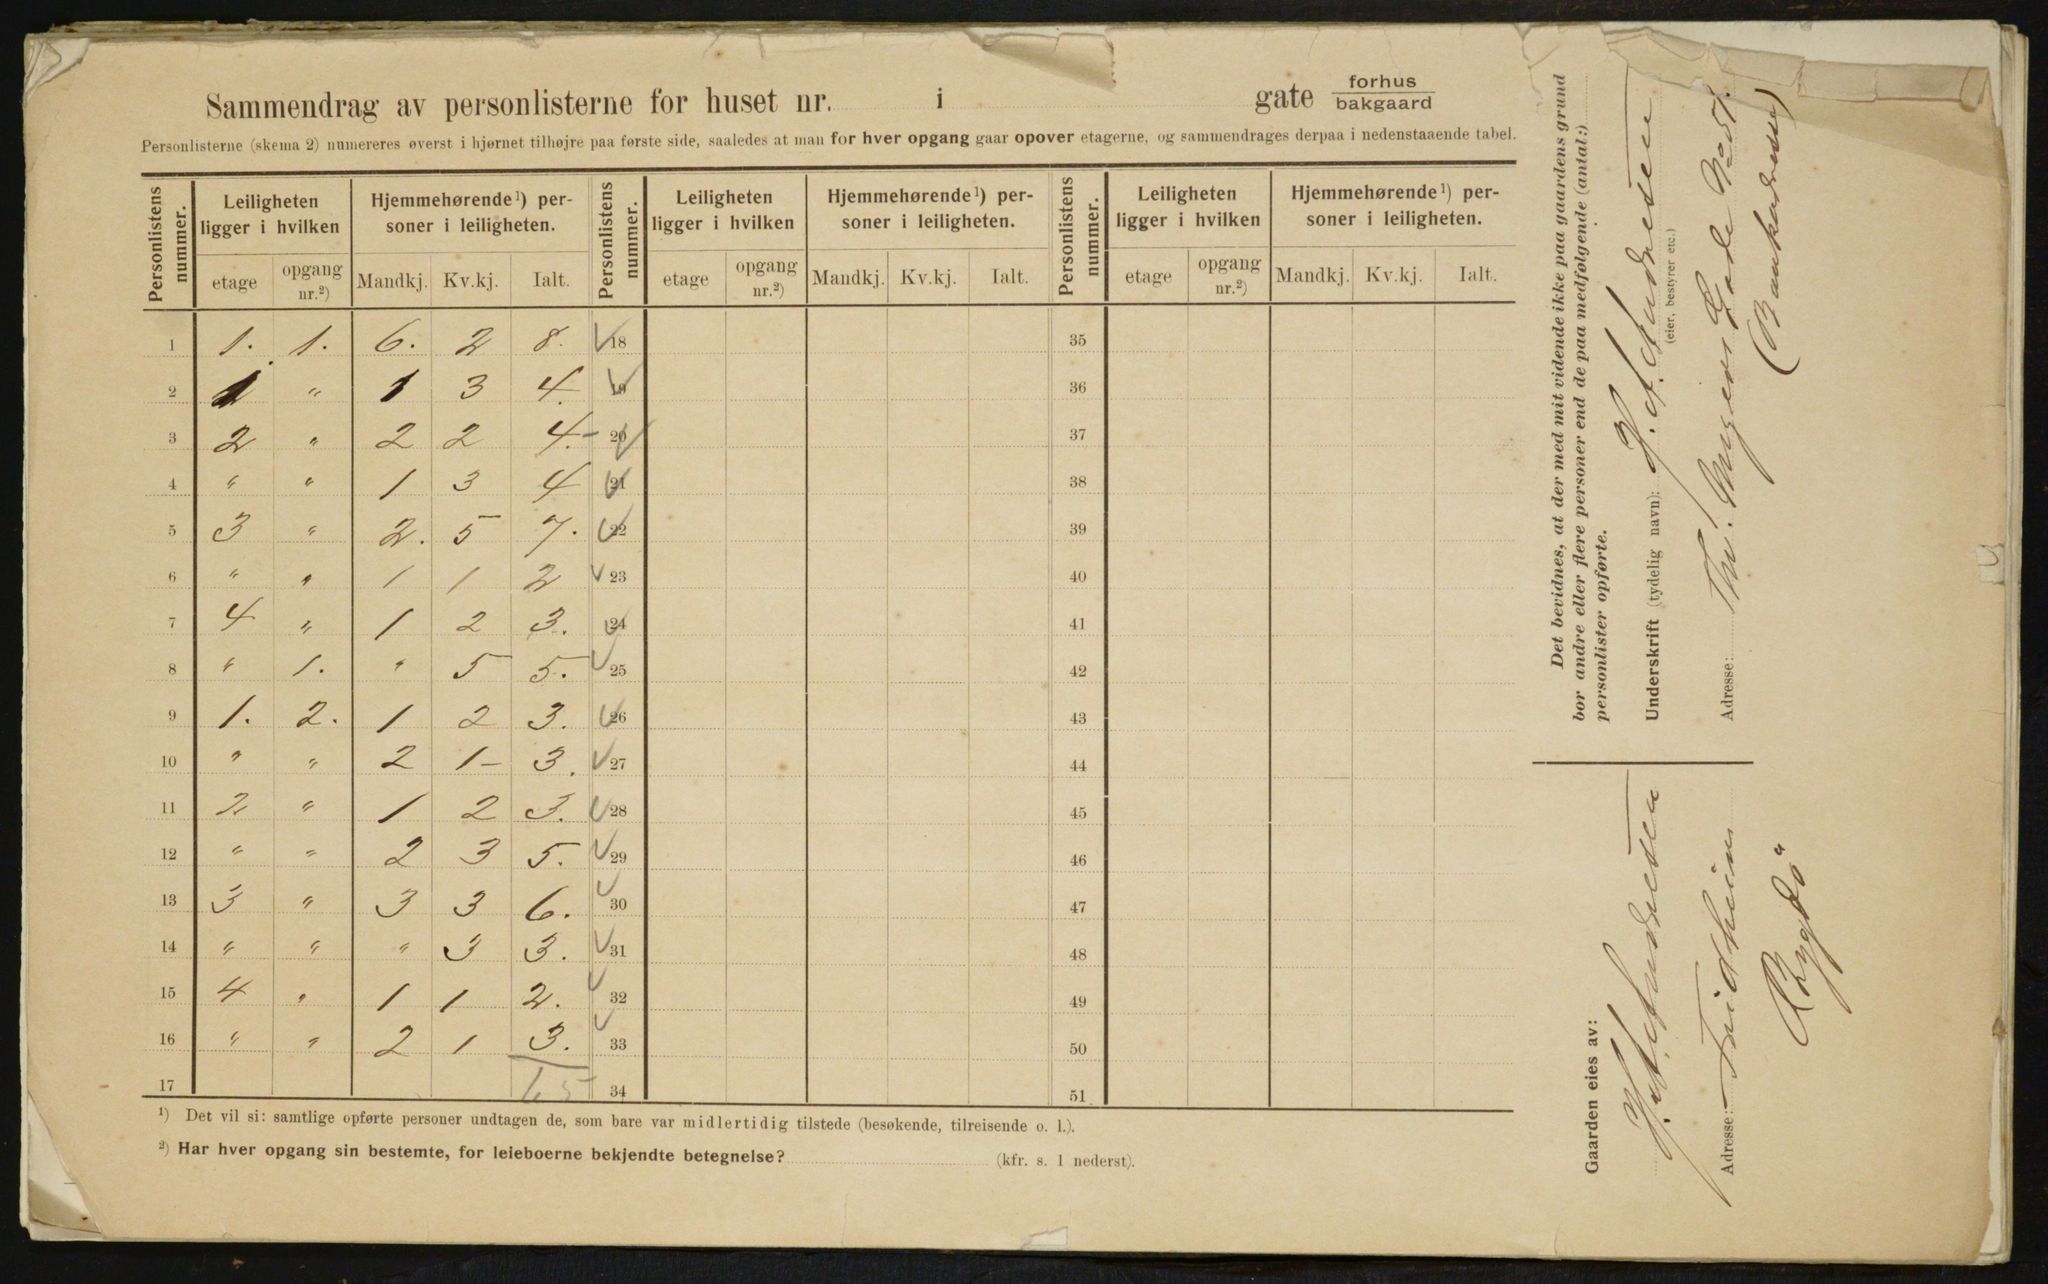 Sammendrag av personlisterne for huset nr. i gate forhus bakgaard
Personlisterne (skema 2) numereres øverst i hjørnet tilhøjre paa første side, saaledes at man for hver opgang gaar opover etagerne, og sammendrages derpaa i nedenstaaende tabel.
Personlistens nummer. Leiligheten ligger i hvilken Hjemmehørende¹) personer i leiligheten. Personlistens nummer. Leiligheten ligger i hvilken Hjemmehørende¹) personer i leiligheten. Personlistens nummer. Leiligheten ligger i hvilken Hjemmehørende¹) personer i leiligheten.
etage opgang nr.²) Mandkj. Kv.kj. Ialt. etage opgang nr.²) Mandkj. Kv.kj. Ialt. etage opgang nr.²) Mandkj. Kv.kj. Ialt.
1 1. 1. 6. 2 8. 18 35
2 1 " 1 3 4. 19 36
3 2 " 2 2 4.- 20 37
4 " " 1 3 4 21 38
5 3 " 2. 5 7. 22 39
6 " " 1 1 2 23 40
7 4 " 1 2 3. 24 41
8 " 1. " 5 5. 25 42
9 1. 2. 1 2 3. 26 43
10 " " 2 1- 3. 27 44
11 2 " 1 2 3. 28 45
12 " " 2 3 5. 29 46
13 3 " 3 3 6. 30 47
14 " " " 3 3. 31 48
15 4 " 1 1 2. 32 49
16 " " 2 1 3. 33 50
17 65 34 51
¹) Det vil si: samtlige opførte personer undtagen de, som bare var midlertidig tilstede (besøkende, tilreisende o. l.).
²) Har hver opgang sin bestemte, for leieboerne bekjendte betegnelse? (kfr. s. 1 nederst).
Det bevidnes, at der med mit vidende ikke paa gaardens grund
bor andre eller flere personer end de paa medfølgende (antal:)
personlister opførte.
Underskrift (tydelig navn): H. A. Andresen
(eier, bestyrer etc.)
Adresse: Th. Meyers Gade No 51.
Gaarden eies av:
H. A. Andresen
Adresse: Fridheim
Bygdö